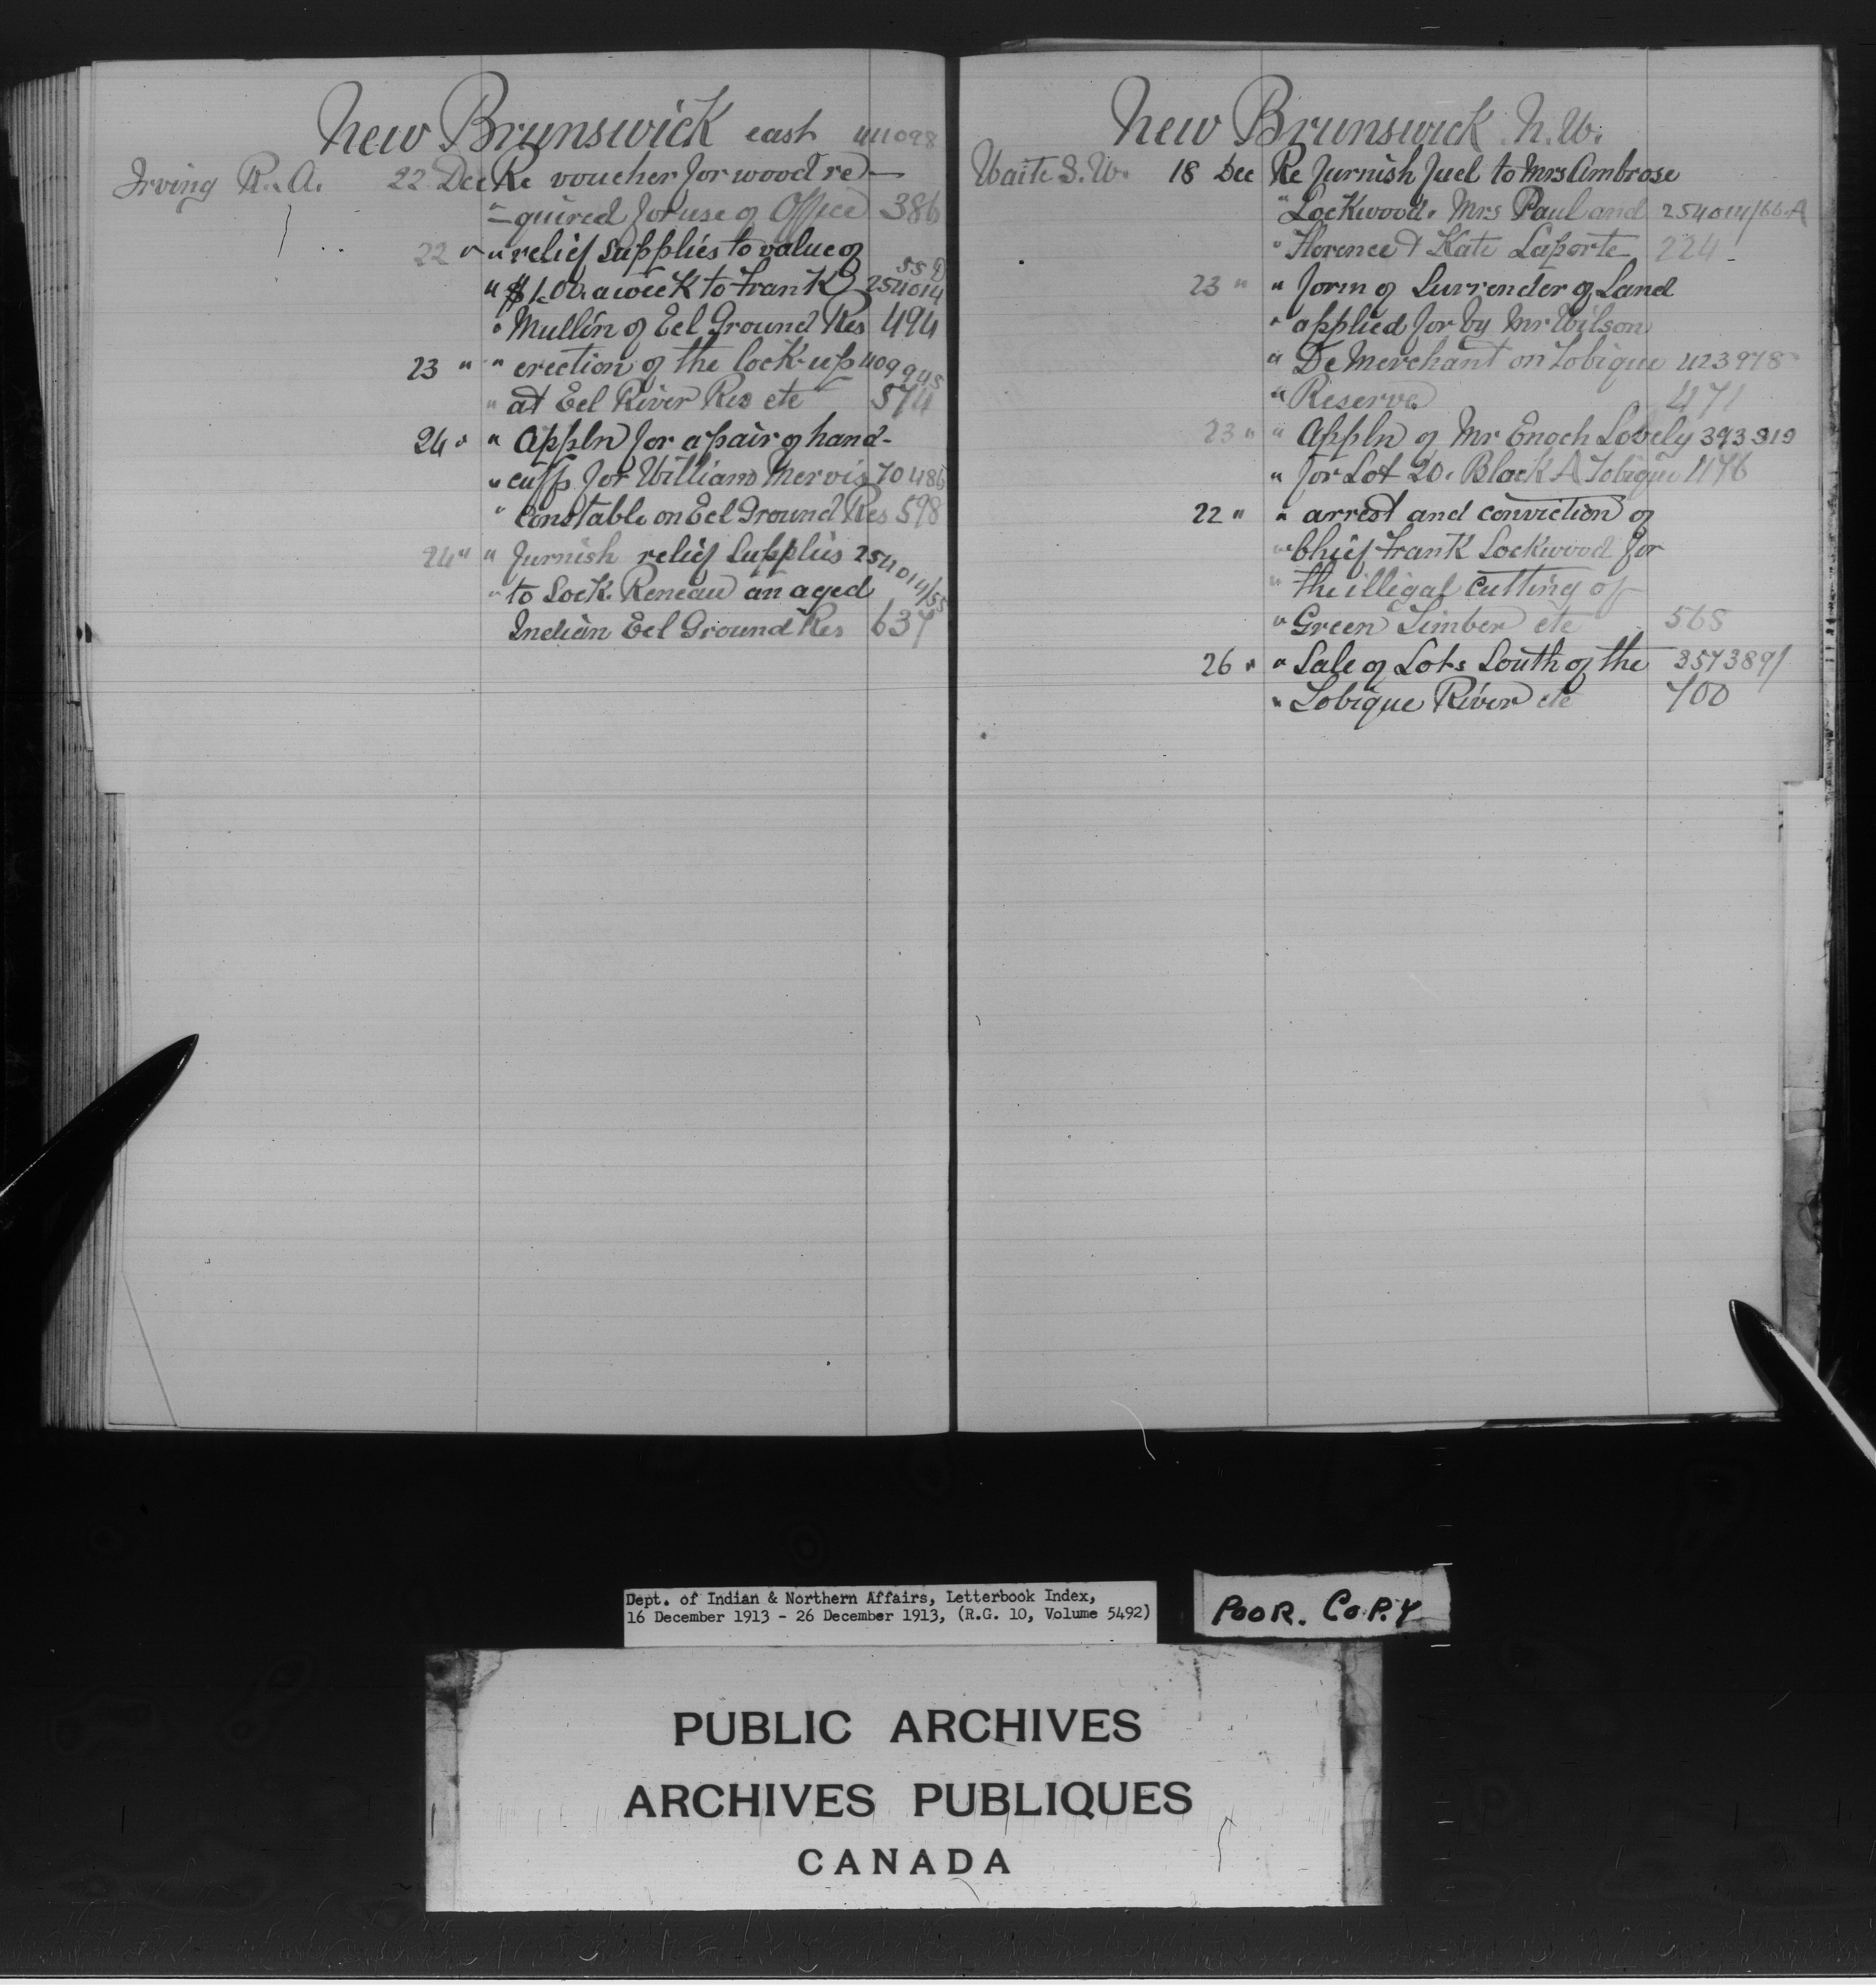 New Brunswick east 411098
Irving R. A. 22 Dec Re voucher for wood re-
" -quired for use of Office 386
22 " " relief supplies to value of
" $1.00 a week to Frank 254014
" Mullin of Eel Ground Res 494
23 " " erection of the lock-up 409945
" at Eel River Res etc 574
24 " " Appln for a pair of hand-
" cuffs for William Mervis 70486
" Constable on Eel Ground Res 598
24 " " furnish relief supplies 254014/55
" to Lock. Reneau an aged
Indian Eel Ground Res 637
New Brunswick N.W.
Waite S. W. 18 Dec Re furnish fuel to Mrs Ambrose
" Lockwood. Mrs Paul and 254014/66-A
" Florence & Kate Laporte 224
23 " " form of Surrender of Land
" applied for by Mr Wilson
" De Merchant on Tobique 423978
" Reserve 471
23 " " Appln of Mr Enoch Lovely 393919
" for Lot 20. Block A Tobique 476
22 " " arrest and conviction of
" Chief Frank Lockwood for
" the illegal cutting of
" Green Timber etc 568
26 " " Sale of Lots South of the 357389/
" Tobique River etc 700
Dept. of Indian & Northern Affairs, Letterbook Index,
16 December 1913 - 26 December 1913, (R.G. 10, Volume 5492)
POOR. COPY
PUBLIC ARCHIVES
ARCHIVES PUBLIQUES
CANADA